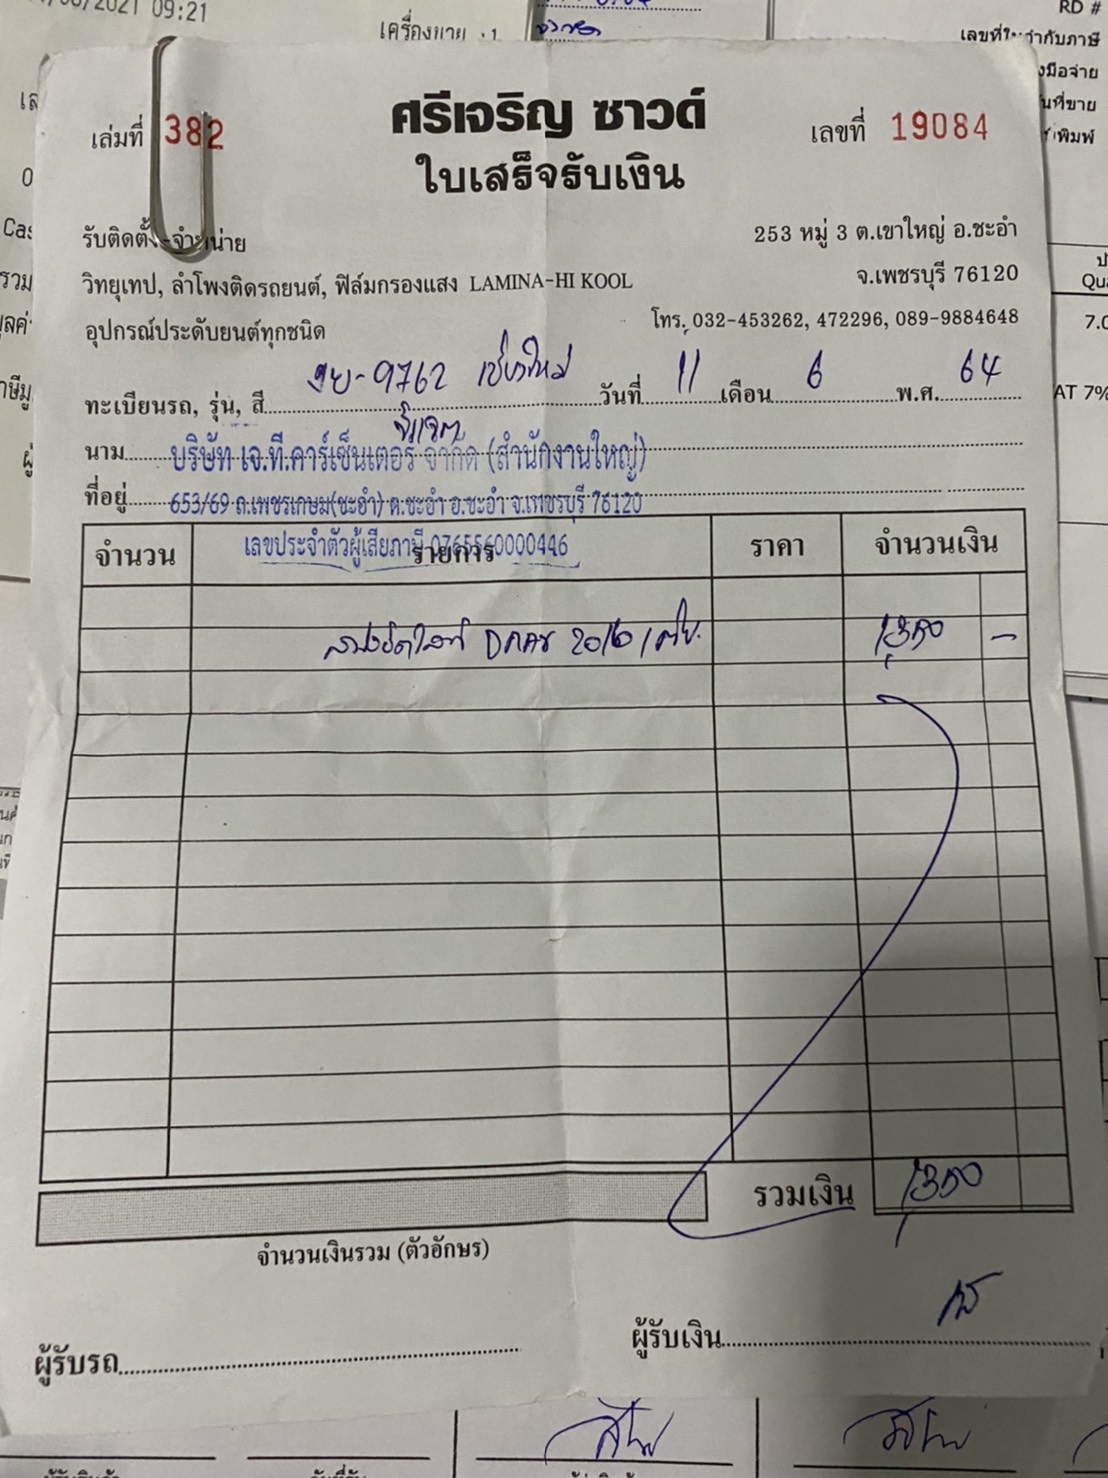 /2021 09:21
เครื่องขาย : 1
RD #
เล่มที่ 382
ศรีเจริญ ซาวด์
เลขที่ 19084
ใบเสร็จรับเงิน
รับติดตั้ง-จำหน่าย
253 หมู่ 3 ต.เขาใหญ่ อ.ชะอำ
วิทยุเทป, ลำโพงติดรถยนต์, ฟิล์มกรองแสง LAMINA-HI KOOL
จ.เพชรบุรี 76120
อุปกรณ์ประดับยนต์ทุกชนิด
โทร. 032-453262, 472296, 089-9884648
ทะเบียนรถ, รุ่น, สี 9762 เชียงใหม่ วันที่ 11 เดือน 6 พ.ศ. 64
นาม บริษัท เจ.ที.คาร์เซ็นเตอร์ จำกัด (สำนักงานใหญ่)
ที่อยู่ 653/69 ถ.เพชรเกษม(ชะอำ) ต.ชะอำ อ.ชะอำ จ.เพชรบุรี 76120
เลขประจำตัวผู้เสียภาษี 0765560000446
จำนวน รายการ ราคา จำนวนเงิน
1,350 -
รวมเงิน 1,350
จำนวนเงินรวม (ตัวอักษร)
ผู้รับรถ
ผู้รับเงิน